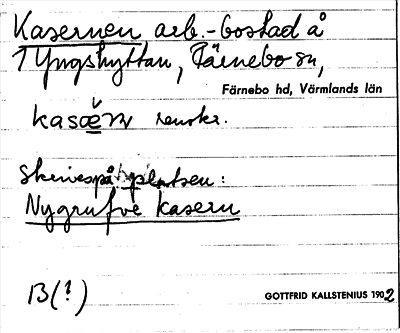 Kasernen arb.-bostad å
1 Yngshyttan, Färnebo sn,
Färnebo hd, Värmlands län
kasæ̌rn renskr.
Skrives på platsen:
Nygrufve kasern
B(?)
GOTTFRID KALLSTENIUS 1902